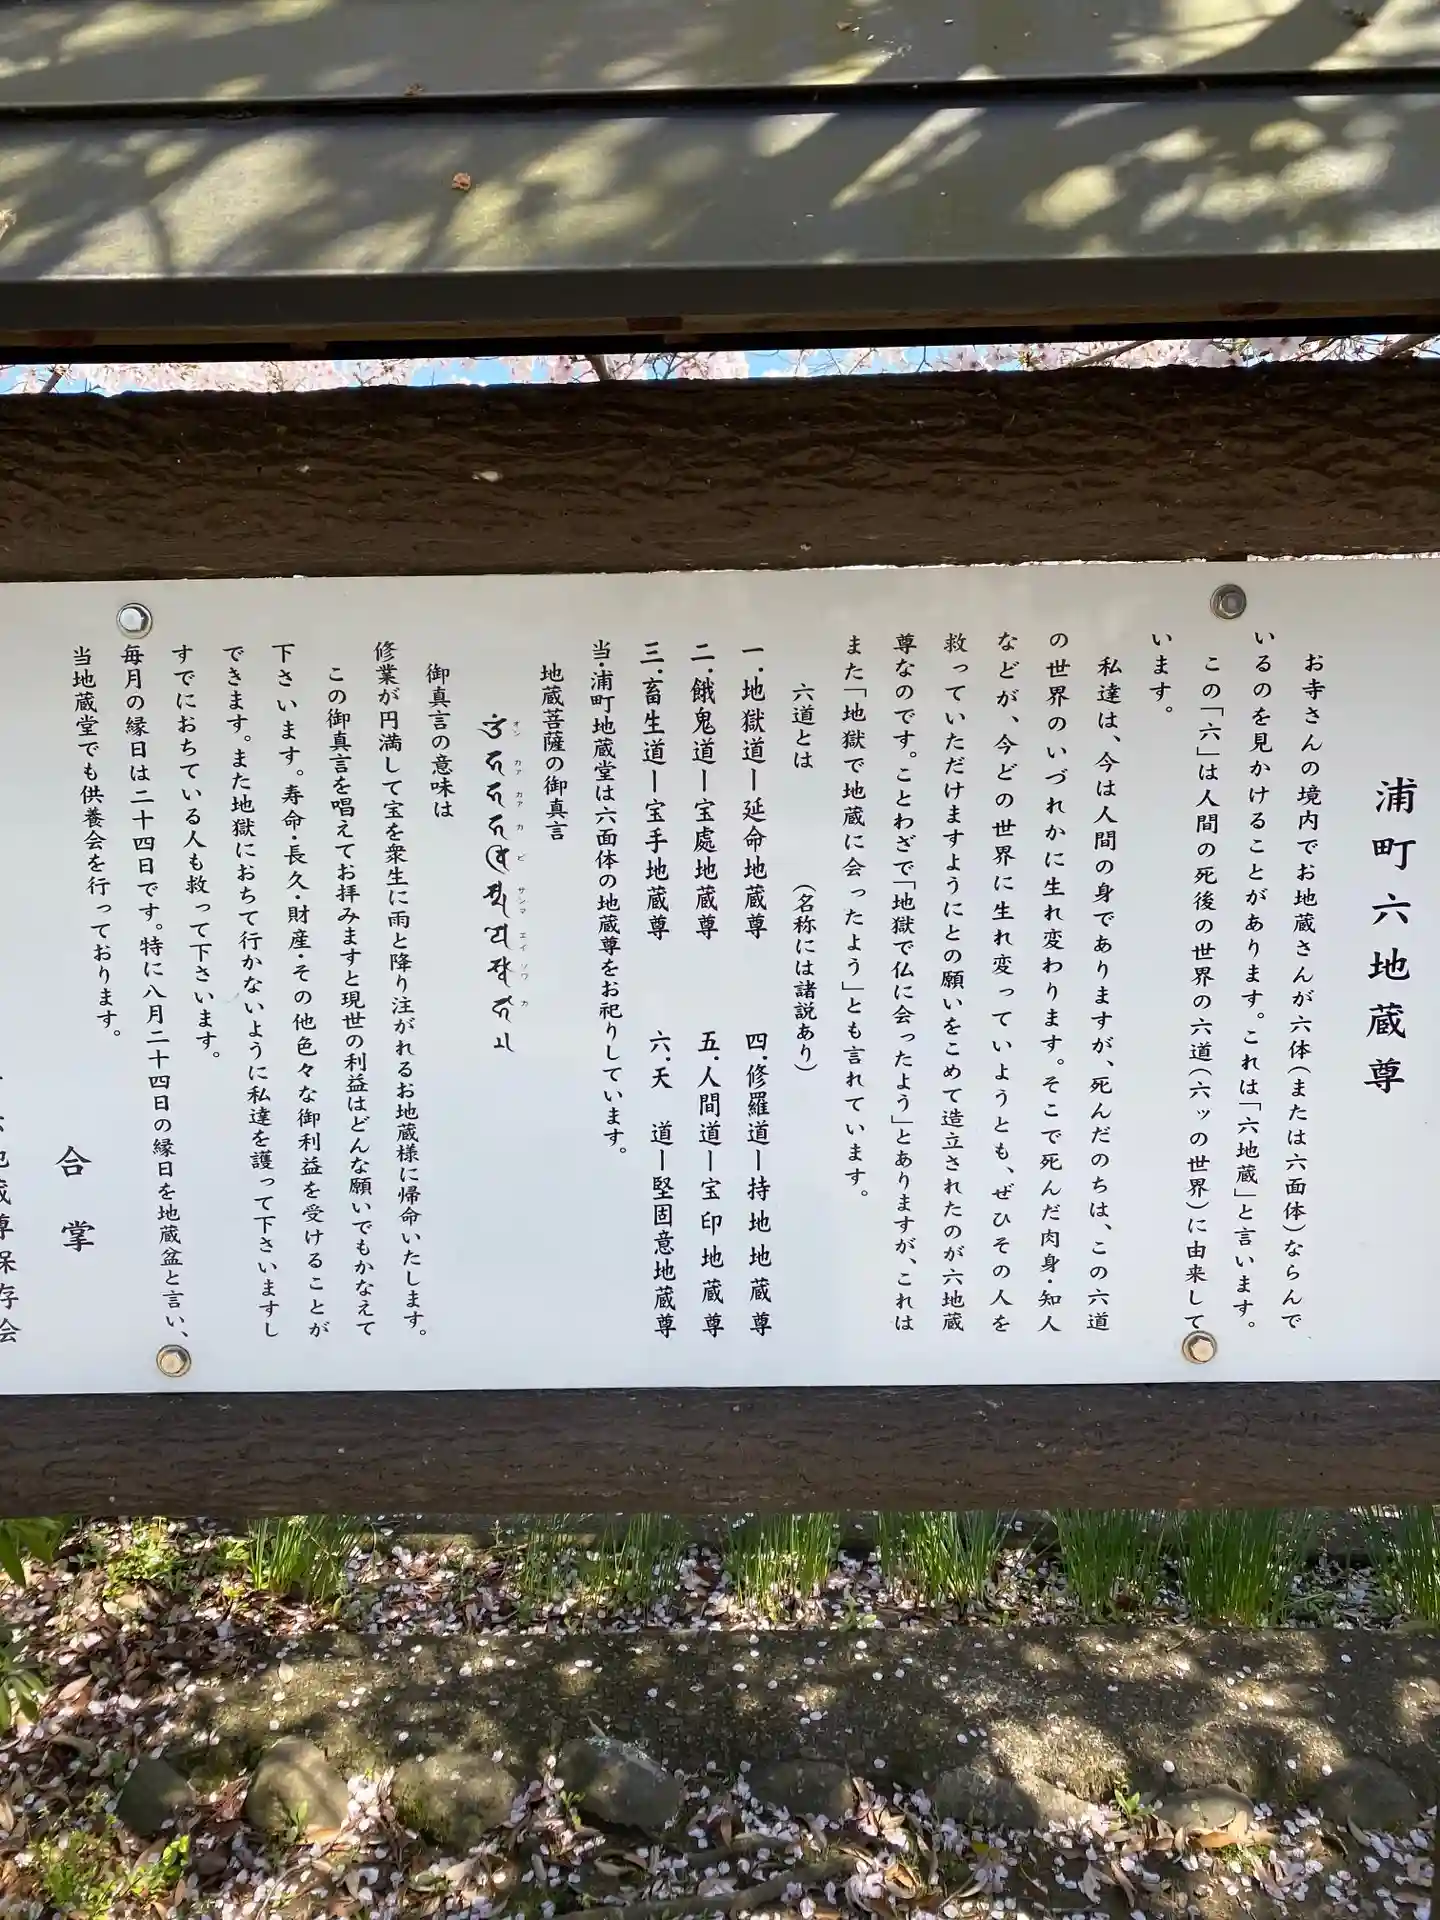 浦町六地蔵尊
お寺さんの境内でお地蔵さんが六体(または六面体)ならんで
いるのを見かけることがあります。これは「六地蔵」と言います。
この「六」は人間の死後の世界の六道(六ッの世界)に由来して
います。
私達は、今は人間の身でありますが、死んだのちは、この六道
の世界のいづれかに生れ変わります。そこで死んだ肉身・知人
などが、今どの世界に生れ変っていようとも、ぜひその人を
救っていただけますようにとの願いをこめて造立されたのが六地蔵
尊なのです。ことわざで「地獄で仏に会ったよう」とありますが、これは
また「地獄で地蔵に会ったよう」とも言れています。
六道とは (名称には諸説あり)
一.地獄道ー延命地蔵尊 四.修羅道ー持地地蔵尊
二.餓鬼道ー宝處地蔵尊 五.人間道ー宝印地蔵尊
三.畜生道ー宝手地蔵尊 六.天 道ー堅固意地蔵尊
当・浦町地蔵堂は六面体の地蔵尊をお祀りしています。
地蔵菩薩の御真言
オン カァ カァ カ ビ サンマ エイ ソワ カ
御真言の意味は
修業が円満して宝を衆生に雨と降り注がれるお地蔵様に帰命いたします。
この御真言を唱えてお拝みますと現世の利益はどんな願いでもかなえて
下さいます。寿命・長久・財産・その他色々な御利益を受けることが
できます。また地獄におちて行かないように私達を護って下さいますし
すでにおちている人も救って下さいます。
毎月の縁日は二十四日です。特に八月二十四日の縁日を地蔵盆と言い、
当地蔵堂でも供養会を行っております。
合掌
地蔵尊保存会